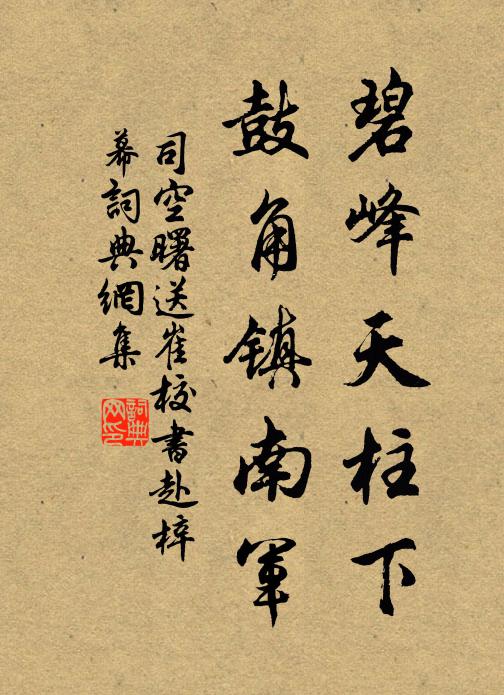 碧峰天柱下
鼓角镇南軍
司空曙送崔校書赴梓
幕詞典網集
詞典网印